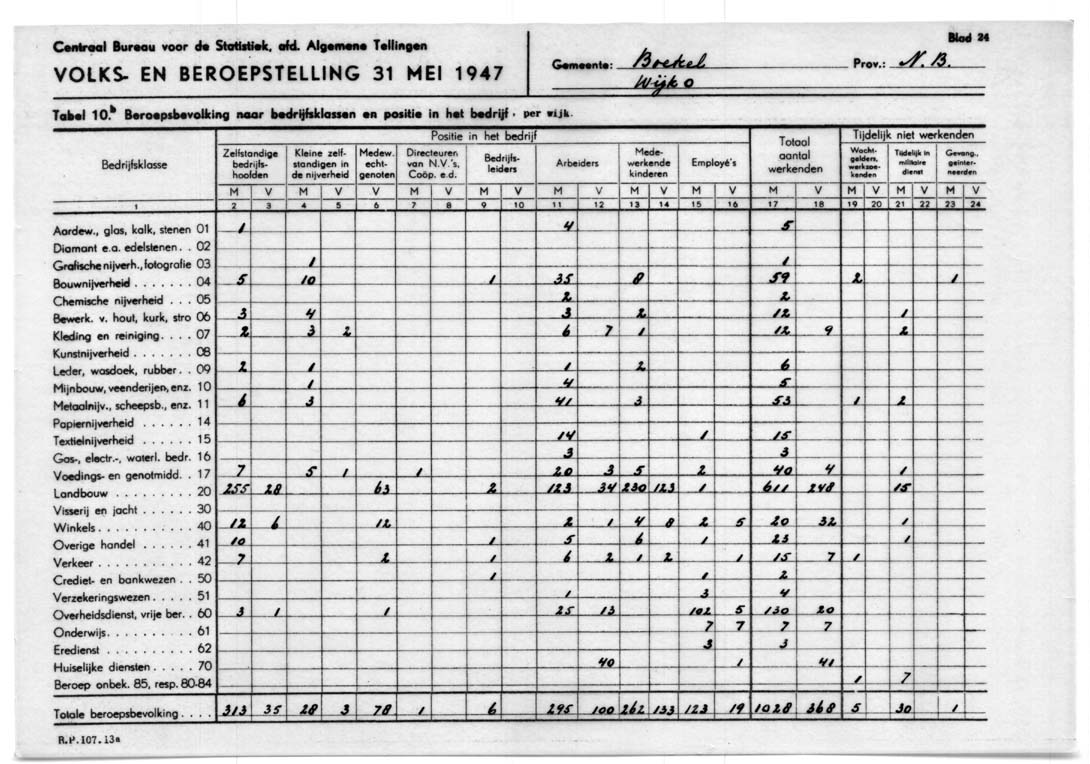 Centraal Bureau voor de Statistiek, afd. Algemene Tellingen
VOLKS- EN BEROEPSTELLING 31 MEI 1947
Gemeente: Boekel
Wijk O
Prov.: N. B.
Blad 24
Tabel 10.b Beroepsbevolking naar bedrijfsklassen en positie in het bedrijf, per wijk.
Bedrijfsklasse
Positie in het bedrijf
Zelfstandige bedrijfs-hoofden
Kleine zelf-standigen in de nijverheid
Medew. echt-genoten
Directeuren van N.V.'s, Coöp. e.d.
Bedrijfs-leiders
Arbeiders
Mede-werkende kinderen
Employé's
Totaal aantal werkenden
Tijdelijk niet werkenden
Wacht-gelders, werkzoe-kenden
Tijdelijk in militaire dienst
Gevang., geïnter-neerden
M V M V V M V M V M V M V M V M V M V M V M V
1 2 3 4 5 6 7 8 9 10 11 12 13 14 15 16 17 18 19 20 21 22 23 24
Aardew., glas, kalk, stenen 01 1 4 5
Diamant e.a. edelstenen . . 02
Grafische nijverh., fotografie 03 1 1
Bouwnijverheid . . . . . . . 04 5 10 1 35 8 59 2 1
Chemische nijverheid . . . 05 2 2
Bewerk. v. hout, kurk, stro 06 3 4 3 2 12 1
Kleding en reiniging. . . . 07 2 3 2 6 7 1 12 9 2
Kunstnijverheid . . . . . . . 08
Leder, wasdoek, rubber. . 09 2 1 1 2 6
Mijnbouw, veenderijen, enz. 10 1 4 5
Metaalnijv., scheepsb., enz. 11 6 3 41 3 53 1 2
Papiernijverheid . . . . . . 14
Textielnijverheid . . . . . . 15 14 1 15
Gas-, electr.-, waterl. bedr. 16 3 3
Voedings- en genotmidd. . 17 7 5 1 1 20 3 5 2 40 4 1
Landbouw . . . . . . . . . 20 255 28 63 2 123 34 230 123 1 611 248 15
Visserij en jacht . . . . . . 30
Winkels . . . . . . . . . . . 40 12 6 12 2 1 4 8 2 5 20 32 1
Overige handel . . . . . . 41 10 1 5 6 1 23 1
Verkeer . . . . . . . . . . . 42 7 2 1 6 2 1 2 1 15 7 1
Crediet- en bankwezen . . 50 1 1 2
Verzekeringswezen. . . . . 51 1 3 4
Overheidsdienst, vrije ber. . 60 3 1 1 25 13 102 5 130 20
Onderwijs. . . . . . . . . . 61 7 7 7 7
Eredienst . . . . . . . . . . 62 3 3
Huiselijke diensten . . . . . 70 40 1 41
Beroep onbek. 85, resp. 80-84 1 7
Totale beroepsbevolking . . . . 313 35 28 3 78 1 6 295 100 262 133 123 19 1028 368 5 30 1
R.P.107.13a